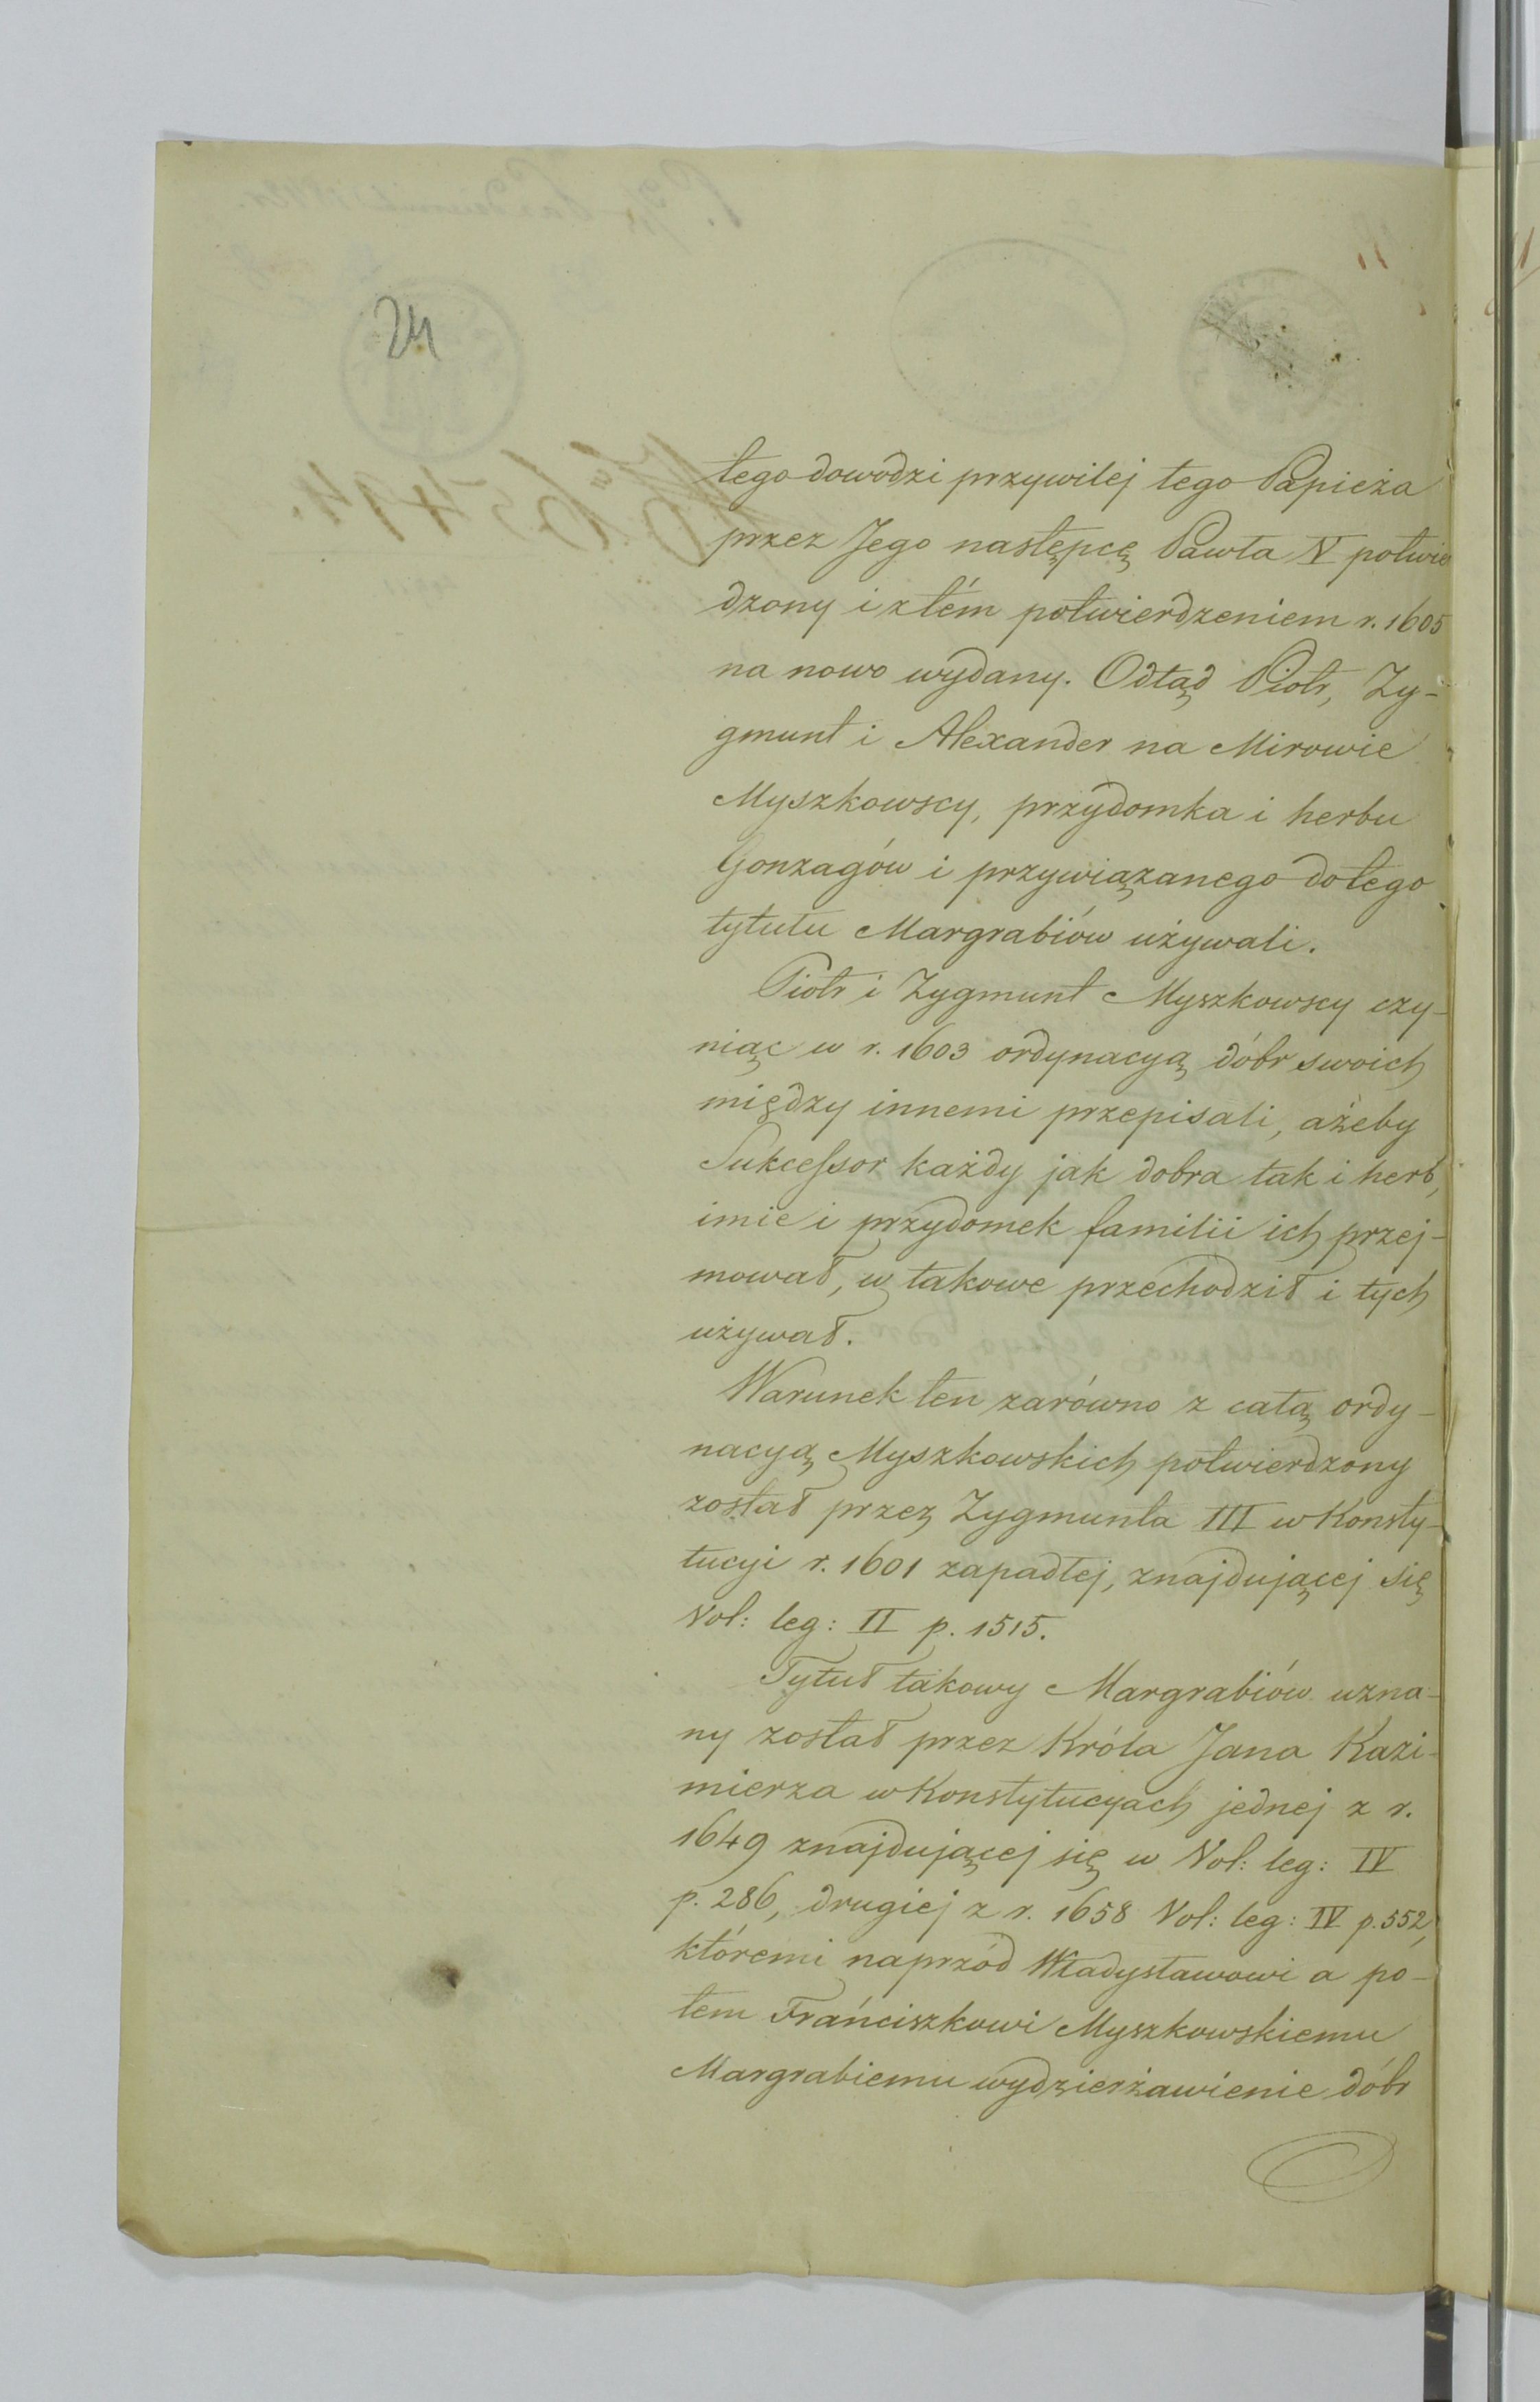 24
tego dowodzi przywilej tego Papieża
przez Jego następcę Pawła V potwie
dzony i z tém potwierdzeniem r. 1605
na nowo wydany. Odtąd Piotr, Zy-
gmunt i Alexander na Mirowie
Myszkowscy, przydomka i herbu
Gonzagów i przywiązanego do tego
tytułu Margrabiów używali.
Piotr i Zygmunt Myszkowscy czy-
niąc w r. 1603 ordynacyą dóbr swoich
między innemi przepisali, ażeby
Sukcessor każdy jak dobra tak i herb,
imie i przydomek familii ich przej-
mował, w takowe przechodził i tych
używał.
Warunek ten zarówno z całą ordy-
nacyą Myszkowskich potwierdzony
został przez Zygmunta III w Konsty-
tucyi r. 1601 zapadłej, znajdującej się
Vol: leg: II p. 1515.
Tytuł takowy Margrabiów uzna-
ny został przez Króla Jana Kazi-
mierza w Konstytucyach jednej z r.
1649 znajdującej się w Vol: leg: IV
p. 286, drugiej z r. 1658 Vol: leg: IV p. 552,
któremi naprzód Władysławowi a po-
tem Franciszkowi Myszkowskiemu
Margrabiemu wydzierżawienie dóbr